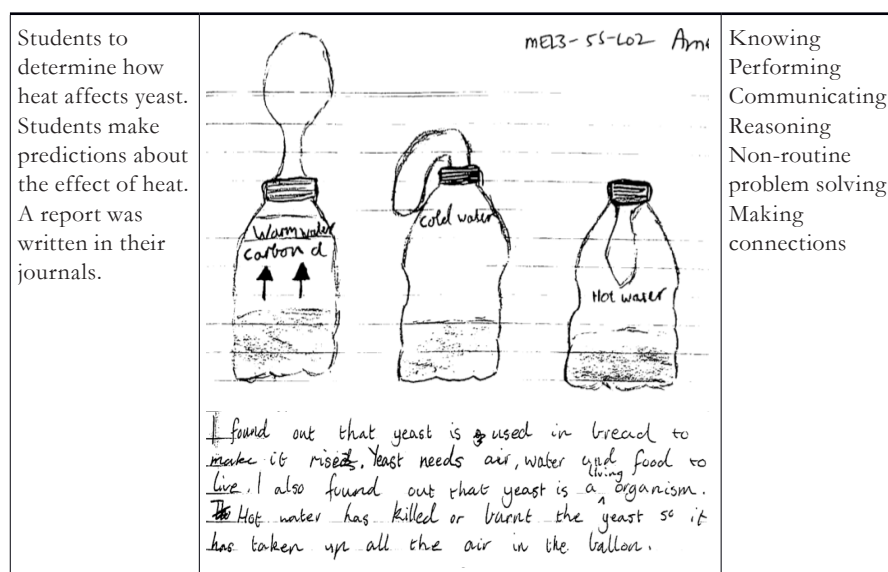 Students to
determine how
heat affects yeast.
Students make
predictions about
the effect of heat.
A report was
written in their
journals.
mEL3-5S-L02 Ame
Warm water
carbon d
cold water
Hot water
I found out that yeast is used in bread to
make it rise. Yeast needs air, water and food to
live. I also found out that yeast is a living organism.
Hot water has killed or burnt the yeast so it
has taken up all the air in the ballon.
Knowing
Performing
Communicating
Reasoning
Non-routine
problem solving
Making
connections